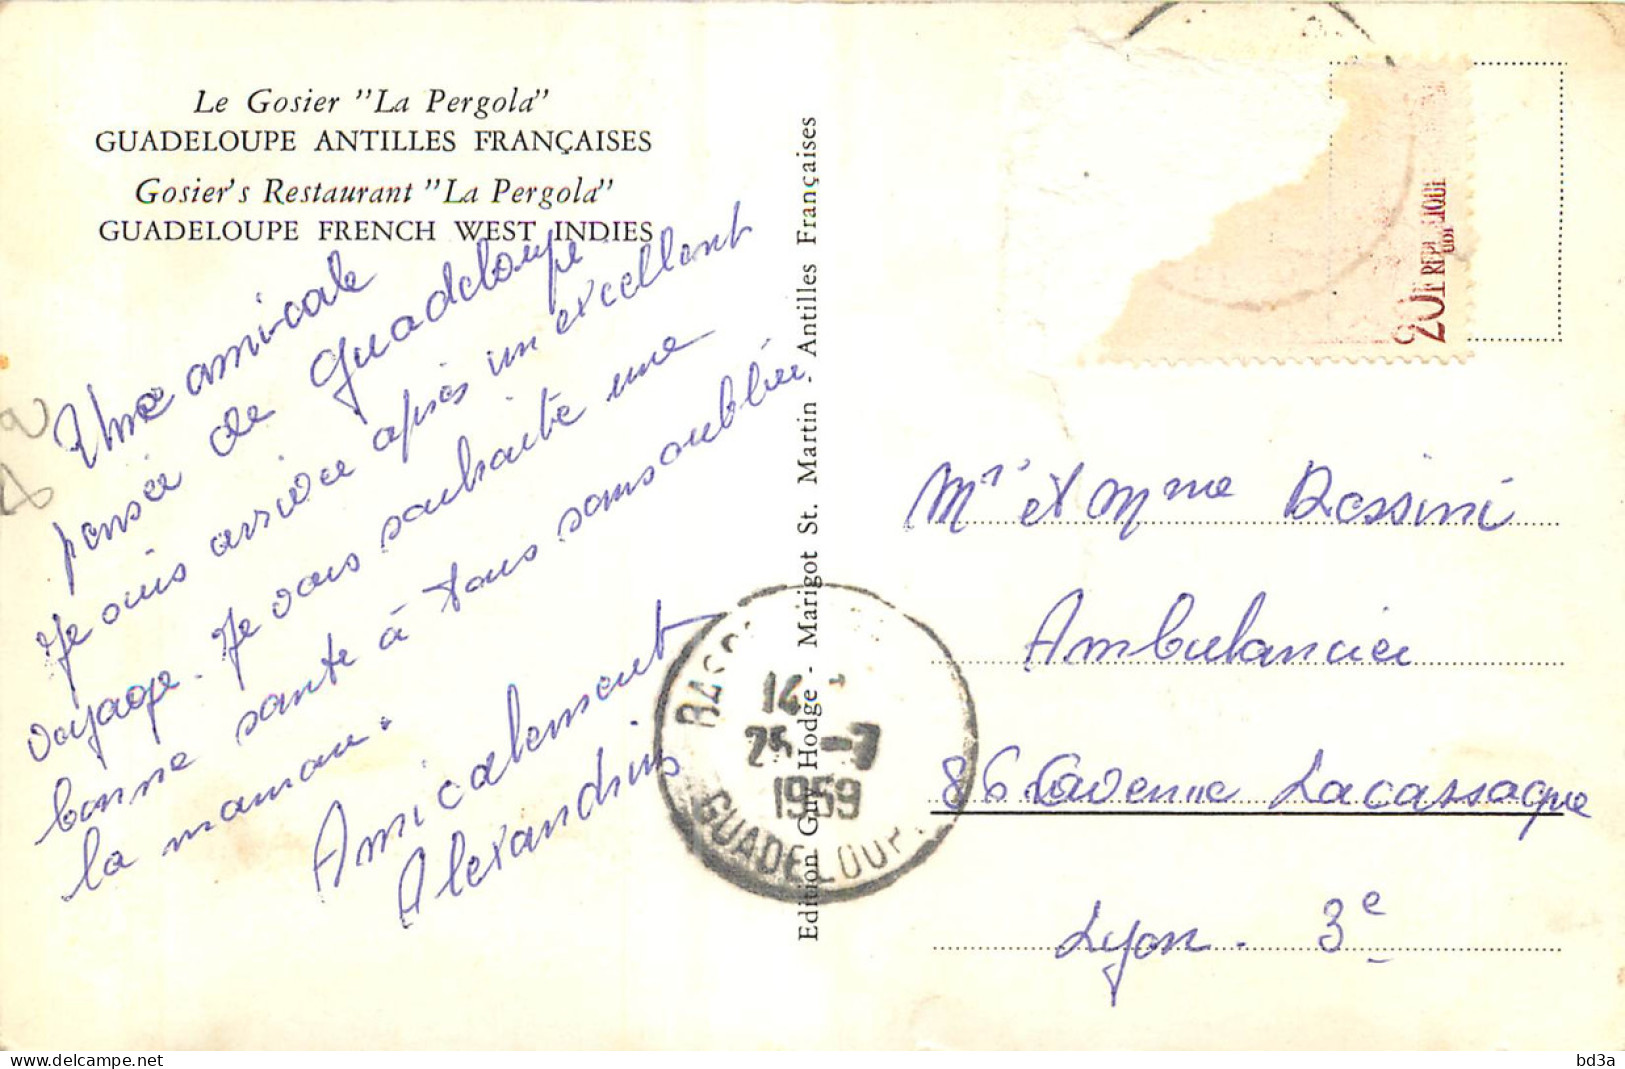 Le Gosier "La Pergola"
GUADELOUPE ANTILLES FRANÇAISES
Gosier's Restaurant "La Pergola"
GUADELOUPE FRENCH WEST INDIES
Une amicale
pensée de Guadeloupe
Je suis arrivée après un excellent
voyage. Je vous souhaite une
bonne santé à tous sans oublier
la maman.
Amicalement
Alexandrin
Edition Guy Hodge - Marigot St. Martin - Antilles Françaises
14
25 -7
1959
GUADELOUP
20F
Mr et Mme Rossini
Ambulancier
86 avenue Lacassagne
Lyon - 3e
bd3a